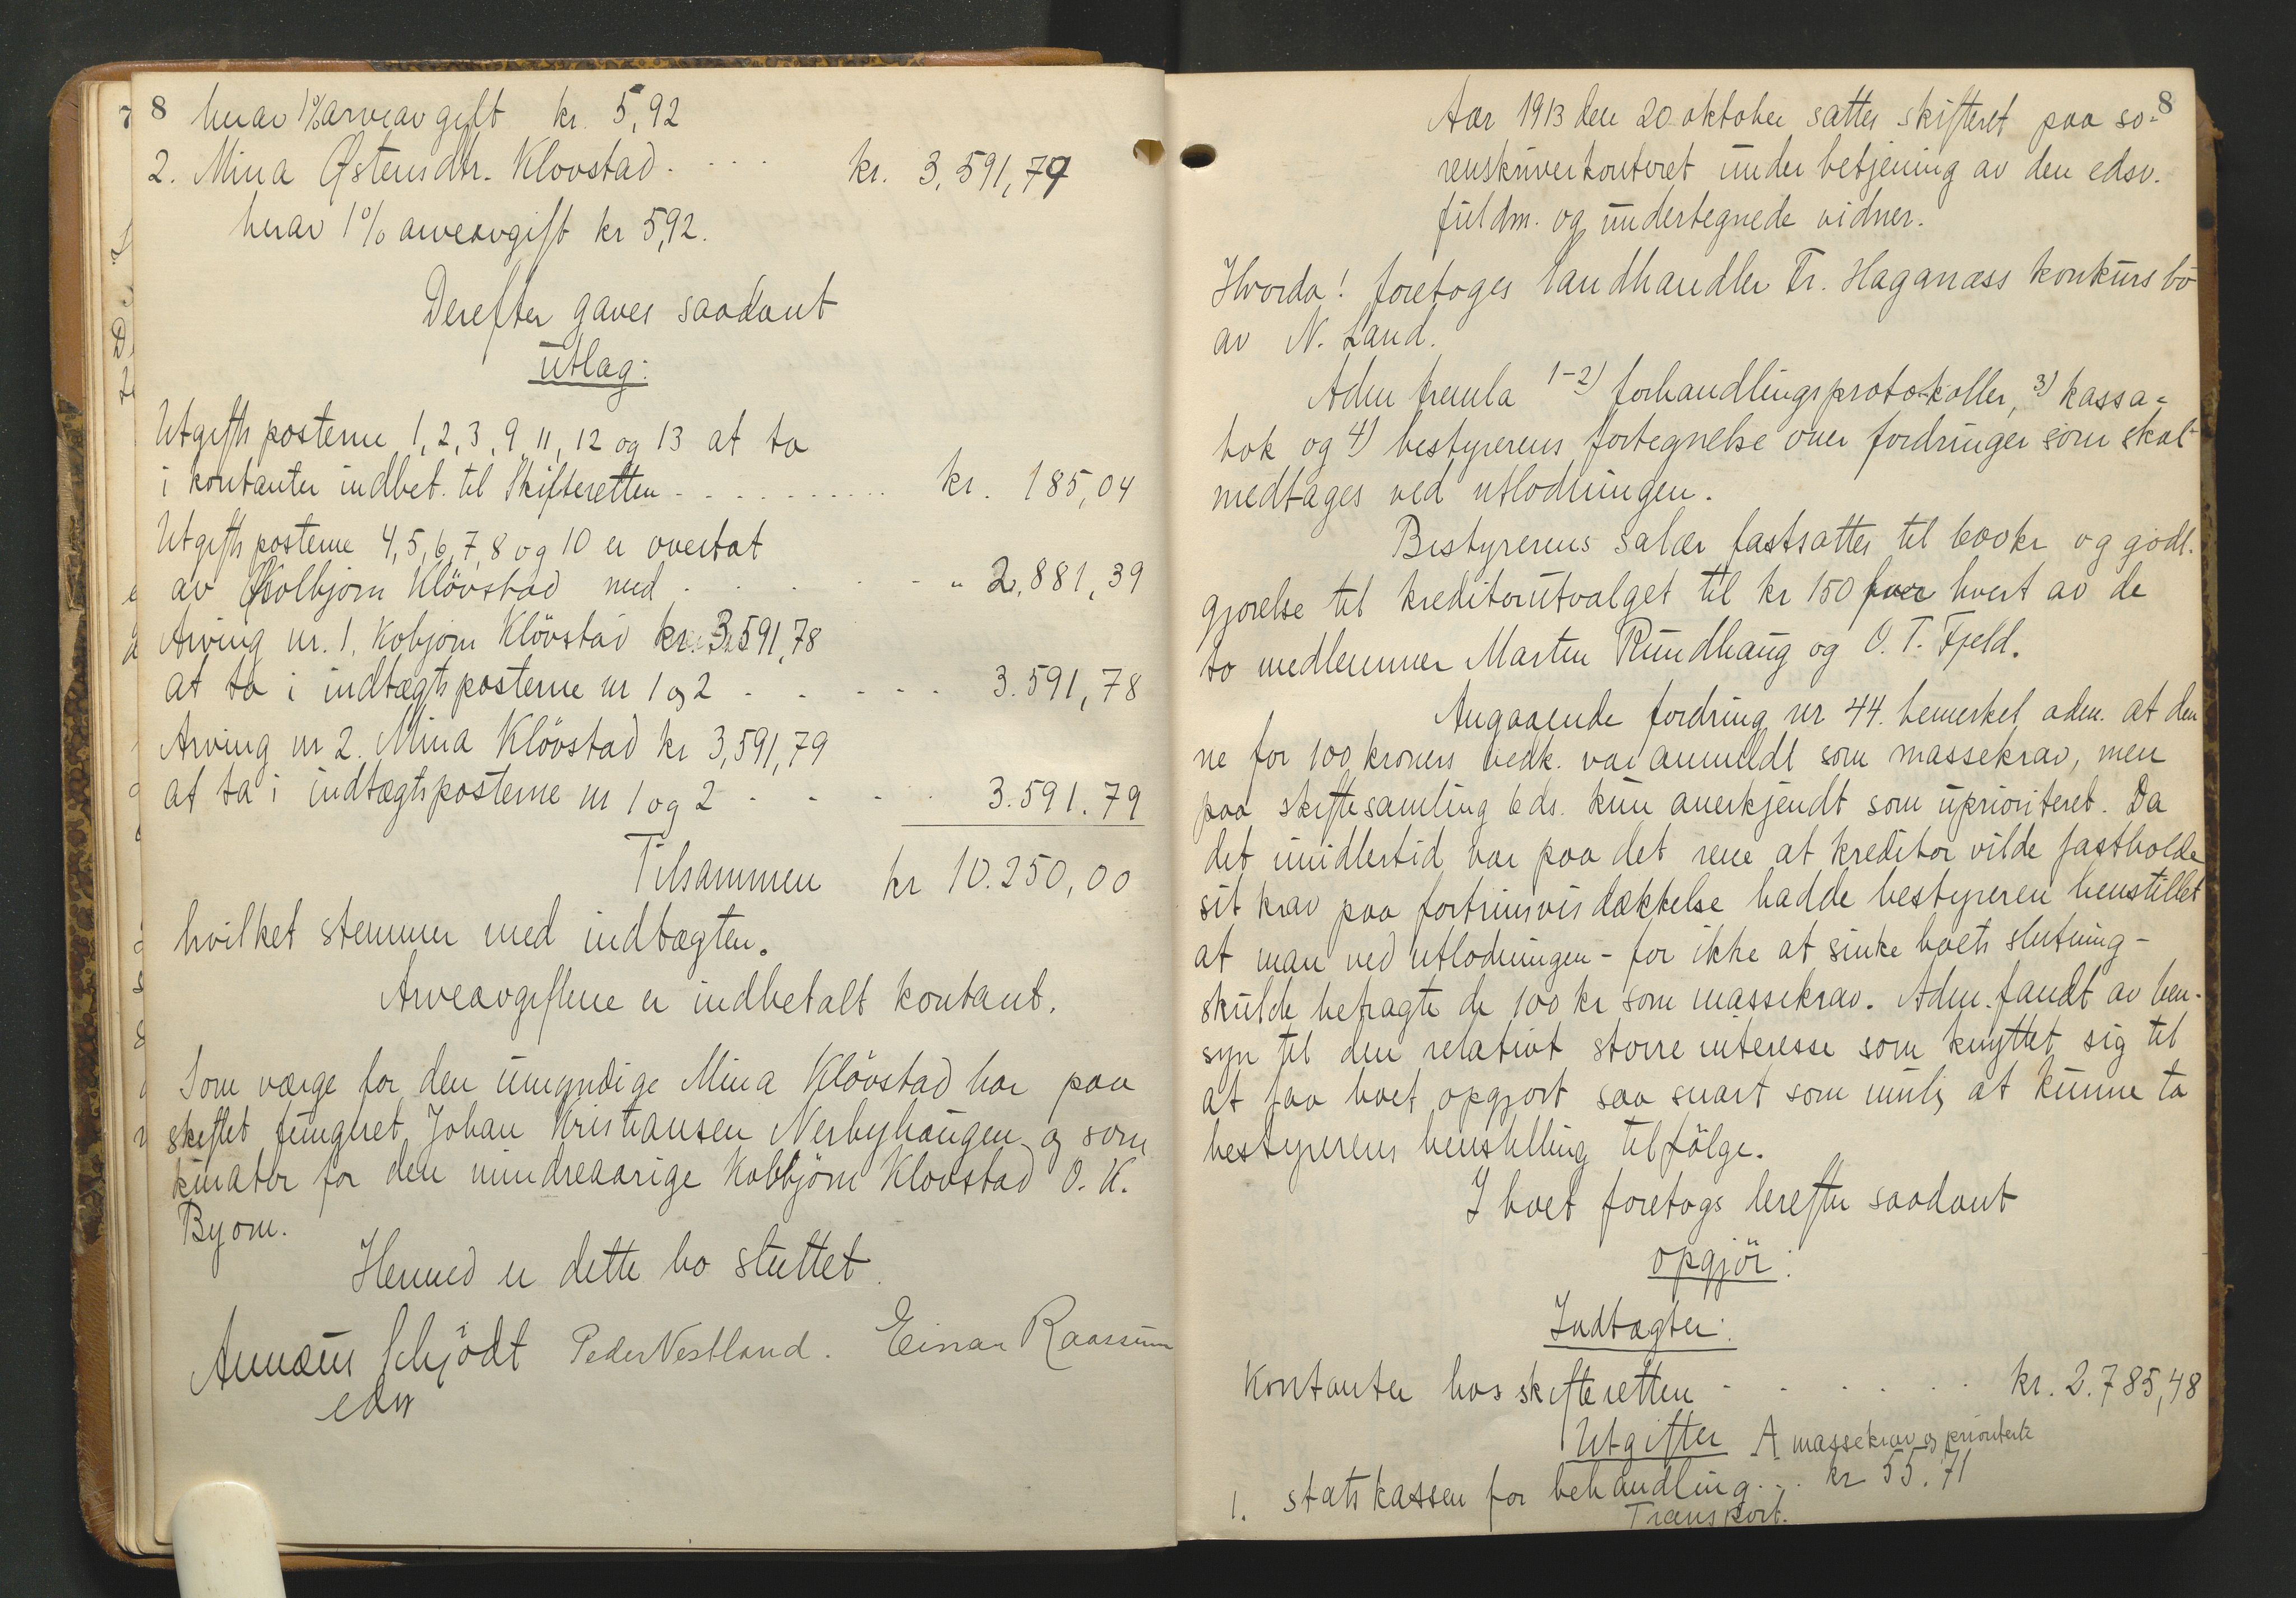 8 herav 1% arveavgift kr. 5,92
2. Mina Østensdtr. Klovstad. - - - kr. 3,591,79
herav 1% arveavgift kr 5,92.
Derefter gaves saadant
utlæg:
Utgifts posterne 1, 2, 3, 9, 11, 12 og 13 at ta
i kontanter indbet. til Skifteretten - - - - - kr. 185,04
Utgifts posterne 4, 5, 6, 7, 8 og 10 er overtat
av Kolbjörn Klövstad med - - - " 2,881,39
Arving nr. 1. Kobjorn Klövstad kr. 3,591,78
at ta i indtægts posterne nr 1 og 2 - - - - - 3.591,78
Arving nr 2. Mina Klövstad kr 3,591,79
at ta i indtægtsposterne nr 1 og 2 - - - - 3.591.79
Tilsammen kr 10.250,00
hvilket stemmer med indtægten.
Arveavgiftene er indbetalt kontant.
Som værge for den umyndige Mina Klövstad har paa
skiftet fungeret Johan Kristiansen Nerbyhaugen og som
kurator for den mindreaarige Kobbjörn Klovstad O. K.
Byom.
Hermed er dette bo sluttet.
Annæus Schjödt Peder Vestland. Einar Raassum
edsv
8
Aar 1913 den 20 oktober sattes skifteret paa so-
renskriverkontoret under betjening av den edsv.
fuldm. og undertegnede vidner.
Hvorda! foretoges landhandler Fr. Haganæss konkurs bo
av N. Land.
Adm fremla 1-2) forhandlingsprotokoller, 3) kassa-
bok og 4) bestyrerens fortegnelse over fordringer som skal
medtages ved utlodningen.
Bestyrerens salær fastsattes til 600 kr og godt-
gjorelse til kreditorutvalget til kr 150 hvert av de
to medlemmer Marten Rundhaug og O. T. Fjeld.
Angaaende fordring nr 44. bemerket adm. at den
ne for 100 kroners vedk. var anmeldt som massekrav, men
paa skiftesamling 6 ds. kun anerkjendt som uprioriteret. Da
det imidlertid var paa det rene at kreditor vilde fastholde
sit krav paa fortrinsvis dækkelse hadde bestyreren henstillet
at man ved utlodningen - for ikke at sinke boets slutning -
skulde betragte de 100 kr som massekrav. Adm. fandt av hen-
syn til den relativt storre interesse som knyttet sig til
at faa boet opgjort saa snart som mulig at kunne ta
bestyrerens henstilling tilfölge.
I boet foretogs derefter saadant
opgjör:
Indtægter:
Kontanter hos skifteretten - - - - - kr. 2.785,48
Utgifter A massekrav og prioriterte
1. statskassen for behandling . . . kr 55.71
Transport.